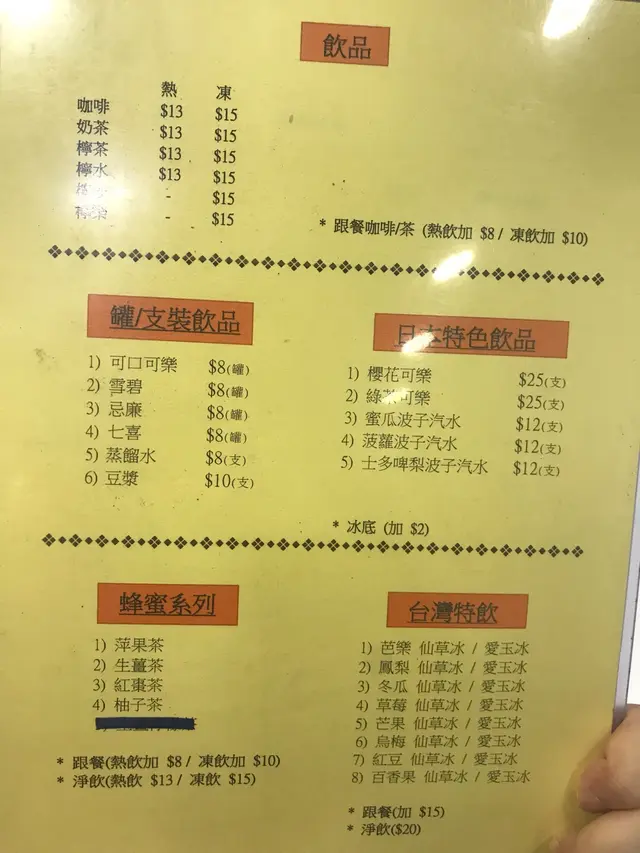 飲品
熱 凍
咖啡 $13 $15
奶茶 $13 $15
檸茶 $13 $15
檸水 $13 $15
- $15
- $15
* 跟餐咖啡/茶 (熱飲加 $8 / 凍飲加 $10)
罐/支裝飲品
1) 可口可樂 $8(罐)
2) 雪碧 $8(罐)
3) 忌廉 $8(罐)
4) 七喜 $8(罐)
5) 蒸餾水 $8(支)
6) 豆漿 $10(支)
日本特色飲品
1) 櫻花可樂 $25(支)
2) 綠茶可樂 $25(支)
3) 蜜瓜波子汽水 $12(支)
4) 菠蘿波子汽水 $12(支)
5) 士多啤梨波子汽水 $12(支)
* 冰底 (加 $2)
蜂蜜系列
1) 萍果茶
2) 生薑茶
3) 紅棗茶
4) 柚子茶
* 跟餐(熱飲加 $8 / 凍飲加 $10)
* 淨飲(熱飲 $13 / 凍飲 $15)
台灣特飲
1) 芭樂 仙草冰 / 愛玉冰
2) 鳳梨 仙草冰 / 愛玉冰
3) 冬瓜 仙草冰 / 愛玉冰
4) 草莓 仙草冰 / 愛玉冰
5) 芒果 仙草冰 / 愛玉冰
6) 烏梅 仙草冰 / 愛玉冰
7) 紅豆 仙草冰 / 愛玉冰
8) 百香果 仙草冰 / 愛玉冰
* 跟餐(加 $15)
* 淨飲($20)